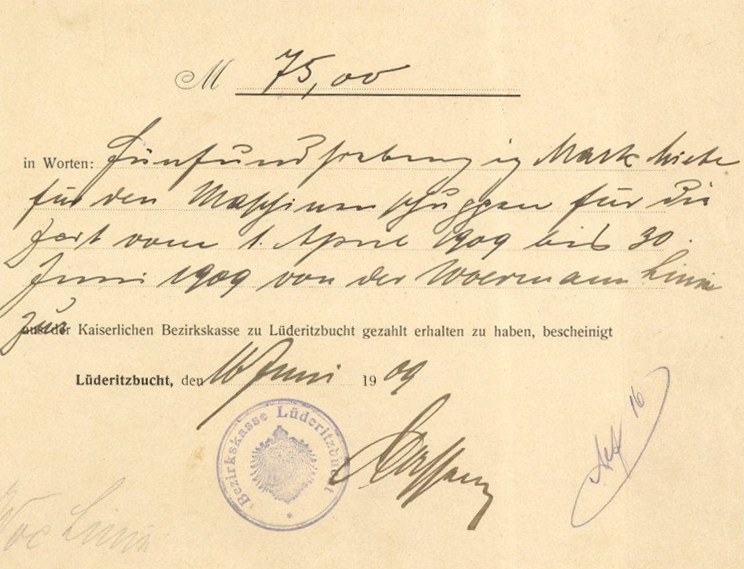 M 75,00
in Worten: Fünfundsiebenzig Mark Miete
für den Maschinenschuppen für die
Zeit vom 1. April 1909 bis 30.
Juni 1909 von der Woermann Linie
zur
aus der Kaiserlichen Bezirkskasse zu Lüderitzbucht gezahlt erhalten zu haben, bescheinigt
Lüderitzbucht, den 16 Juni 1909
Bezirkskasse Lüderitzbucht
16
Linie